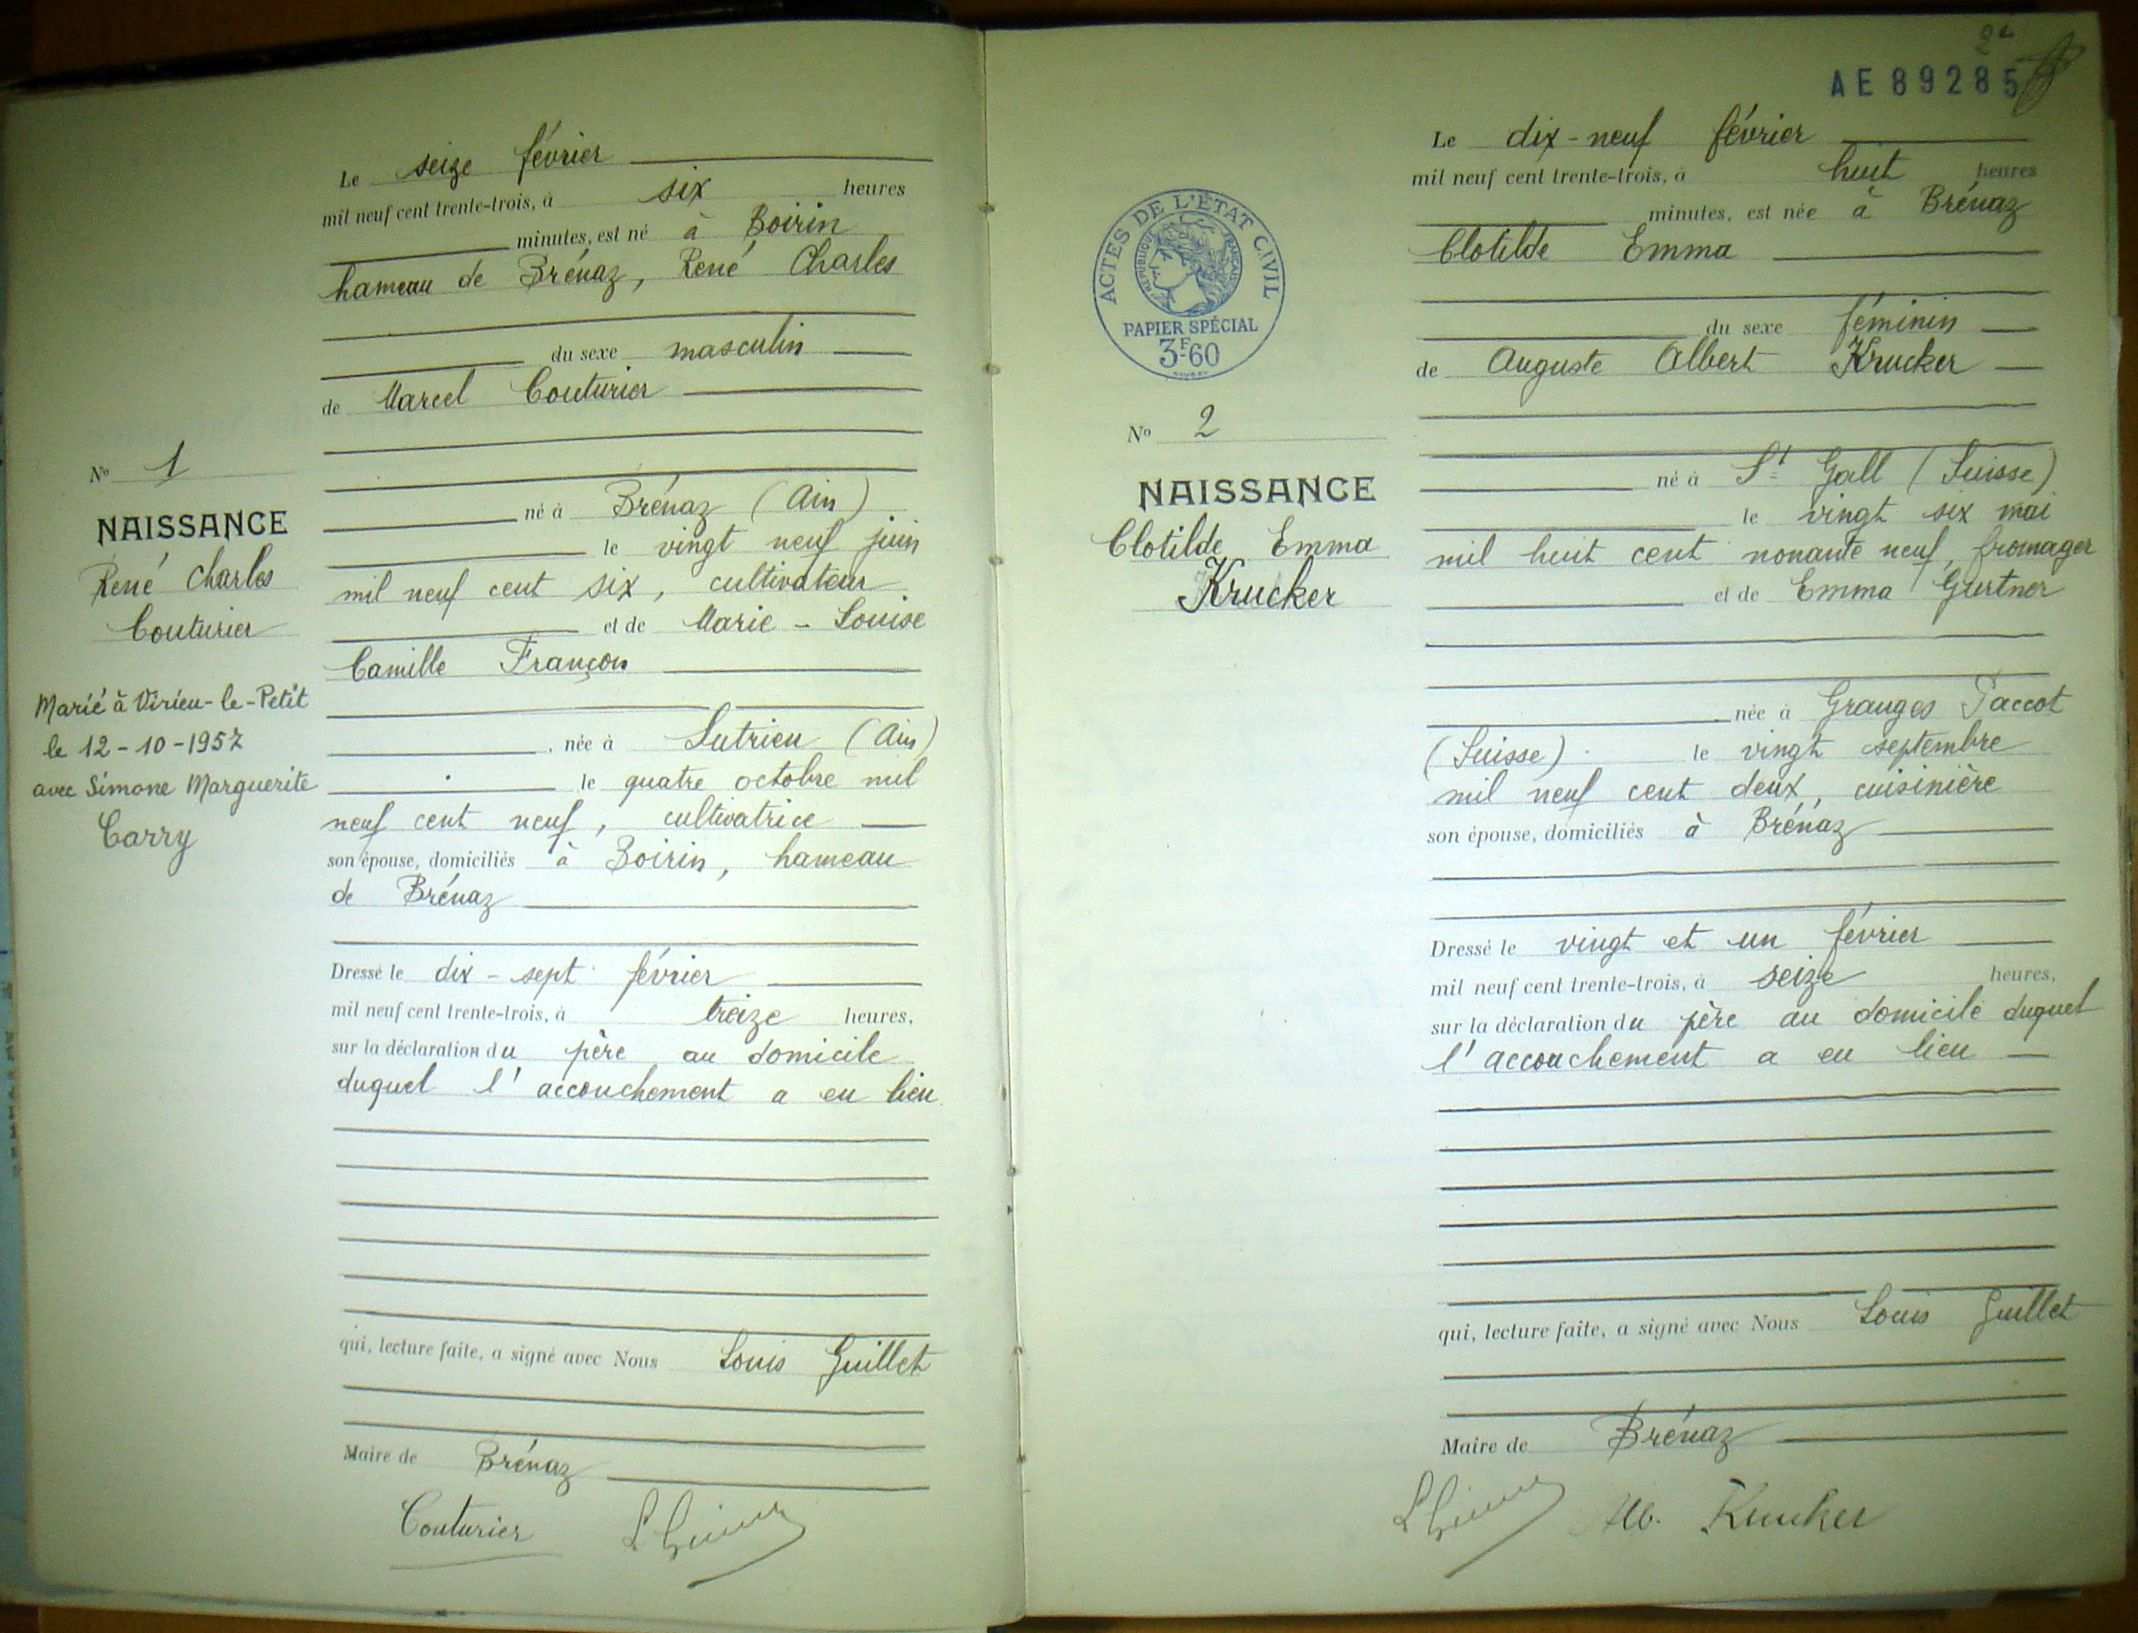 Le seize février
mil neuf cent trente-trois, à six heures
minutes, est né à Boirin
hameau de Brénaz, René Charles
du sexe masculin
de Marcel Couturier
né à Brénaz (Ain)
le vingt neuf juin
mil neuf cent six, cultivateur
et de Marie-Louise
Camille Françon
née à Lutrieu (Ain)
le quatre octobre mil
neuf cent neuf, cultivatrice
son épouse, domiciliés à Boirin, hameau
de Brénaz
Dressé le dix-sept février
mil neuf cent trente-trois, à treize heures,
sur la déclaration du père au domicile
duquel l'accouchement a eu lieu
qui, lecture faite, a signé avec Nous Louis Guillet
Maire de Brénaz
Couturier
No 1
NAISSANCE
René Charles
Couturier
Marié à Virieu-le-Petit
le 12-10-1957
avec Simone Marguerite
Carry
AE 89285
ACTES DE L'ÉTAT CIVIL
RÉPUBLIQUE FRANÇAISE
PAPIER SPÉCIAL
3F60
No 2
NAISSANCE
Clotilde Emma
Krucker
Le dix-neuf février
mil neuf cent trente-trois, à huit heures
minutes, est née à Brénaz
Clotilde Emma
du sexe féminin
de Auguste Albert Krucker
né à St Gall (Suisse)
le vingt six mai
mil huit cent nonante neuf, fromager
et de Emma Gurtner
née à Granges Paccot
(Suisse) le vingt septembre
mil neuf cent deux, cuisinière
son épouse, domiciliés à Brénaz
Dressé le vingt et un février
mil neuf cent trente-trois, à seize heures,
sur la déclaration du père au domicile duquel
l'accouchement a eu lieu
qui, lecture faite, a signé avec Nous Louis Guillet
Maire de Brénaz
Alb. Krucker